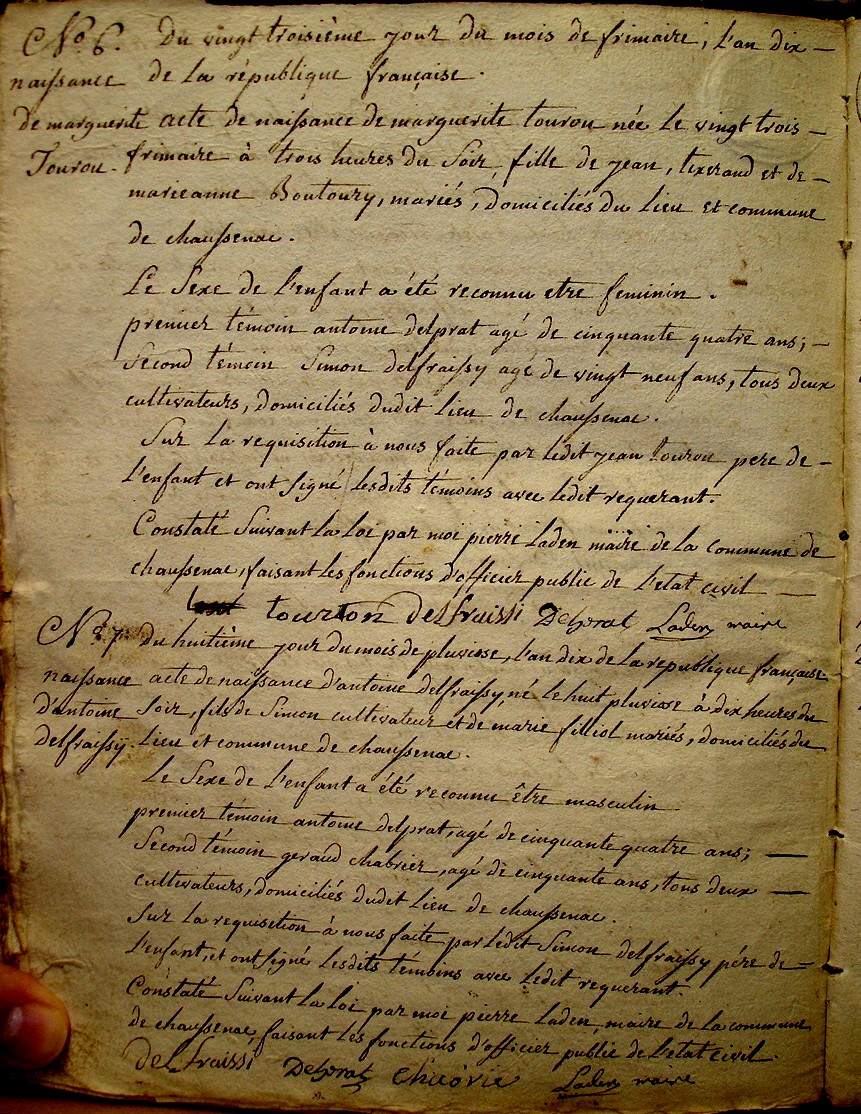 No. 6. Du vingt troisième jour du mois de frimaire, l'an dix —
naissance de la république française.
de marguerite acte de naissance de marguerite tourou née le vingt trois —
Tourou. frimaire à trois heures du soir, fille de jean, tixerand et de —
marieanne Boutoury, mariés, domiciliés du lieu et commune
de chaussenac.
Le sexe de l'enfant a été reconnu etre feminin.
premier témoin antoine delprat agé de cinquante quatre ans; —
second témoin Simon delfraissy agé de vingt neuf ans, tous deux
cultivateurs, domiciliés dudit lieu de chaussenac.
Sur la requisition à nous faite par ledit jean tourou pere de —
l'enfant et ont signé lesdits témoins avec ledit requerant.
Constaté suivant la loi par moi pierre laden maire de la commune de
chaussenac, faisant les fonctions d'officier public de l'etat civil —
tourton delfraissi Delprat Laden maire
No. 7. du huitième jour du mois de pluviose, l'an dix de la republique française
naissance acte de naissance d'antoine delfraissy, né le huit pluviose à dix heures du
d'antoine soir, fils de Simon cultivateur et de marie filliol mariés, domiciliés du
delfraissy. lieu et commune de chaussenac.
Le sexe de l'enfant a été reconnu être masculin
premier témoin antoine delprat, agé de cinquante quatre ans; —
second témoin geraud chabrier, agé de cinquante ans, tous deux —
cultivateurs, domiciliés dudit lieu de chaussenac.
Sur la requisition à nous faite par ledit Simon delfraissy pére de =
l'enfant, et ont signé lesdits témoins avec ledit requerant.
Constaté suivant la loi par moi pierre laden, maire de la commune
de chaussenac, faisant les fonctions d'officier public de l'etat civil.
delfraissi Delprat Laden maire